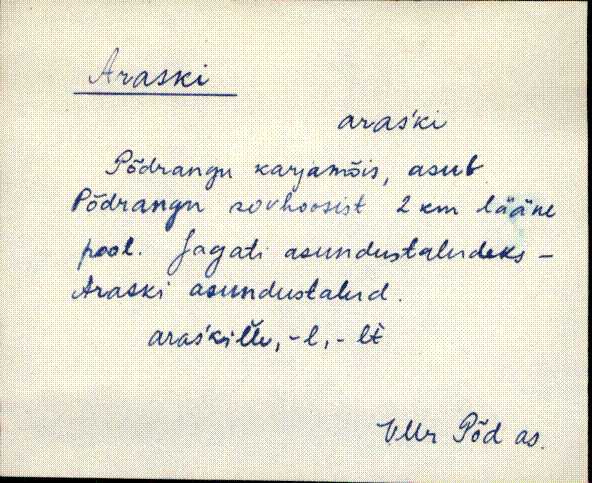 Araski
araśki
Põdrangu karjamõis, asub
Põdrangu sovhoosist 2 km lääne
pool. Jagati asundustaludeks –
Araski asundustalud.
-l, - lt
VMr Põd as.